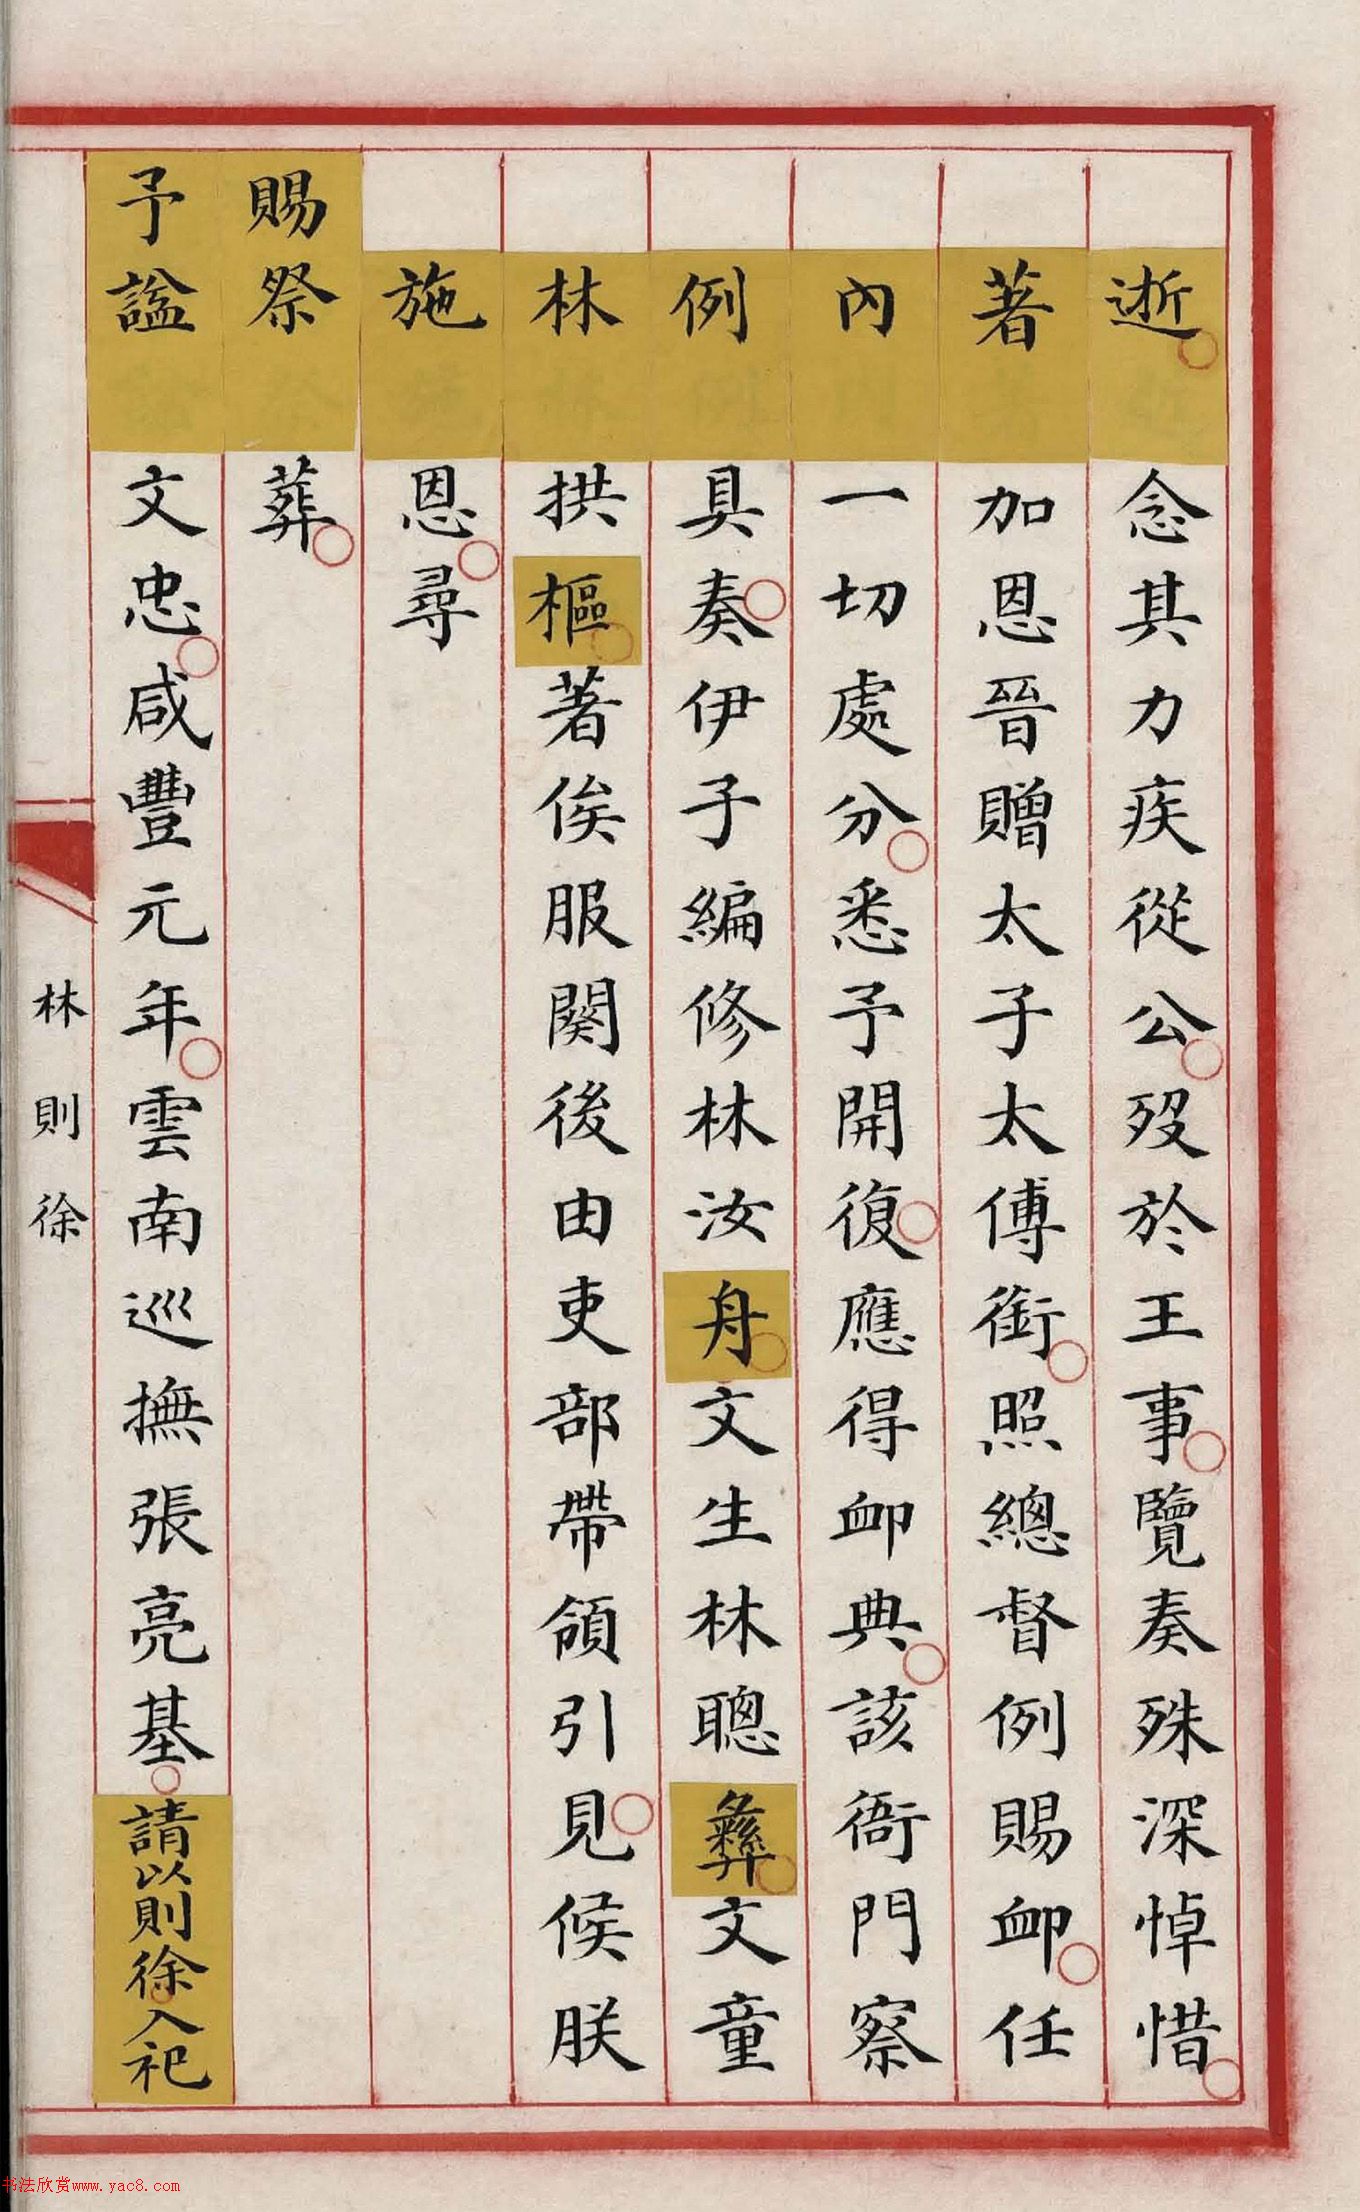 逝念其力疾從公歿於王事覽奏殊深悼惜
著加恩晉贈太子太傅銜照總督例賜卹任
內一切處分悉予開復應得卹典該衙門察
例具奏伊子編修林汝舟文生林聰彝文童
林拱樞著俟服闋後由吏部帶領引見候朕
施恩尋
賜祭葬
予諡文忠咸豐元年雲南巡撫張亮基請以則徐入祀
林則徐
书法欣赏www.yac8.com